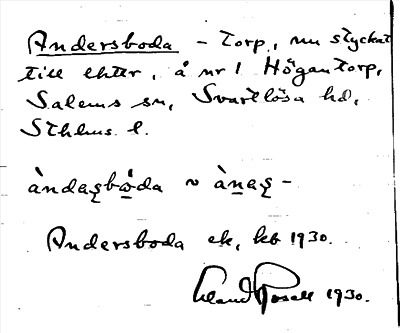 Andersboda – torp, nu styckat
till ehttr, å nr 1 Högantorp,
Salems sn, Svartlösa hd,
Sthlms l.
àndaʂbo̲da ~ àn̲aʂ –
Andersboda ek, kb 1930.
Erland Rosell 1930.